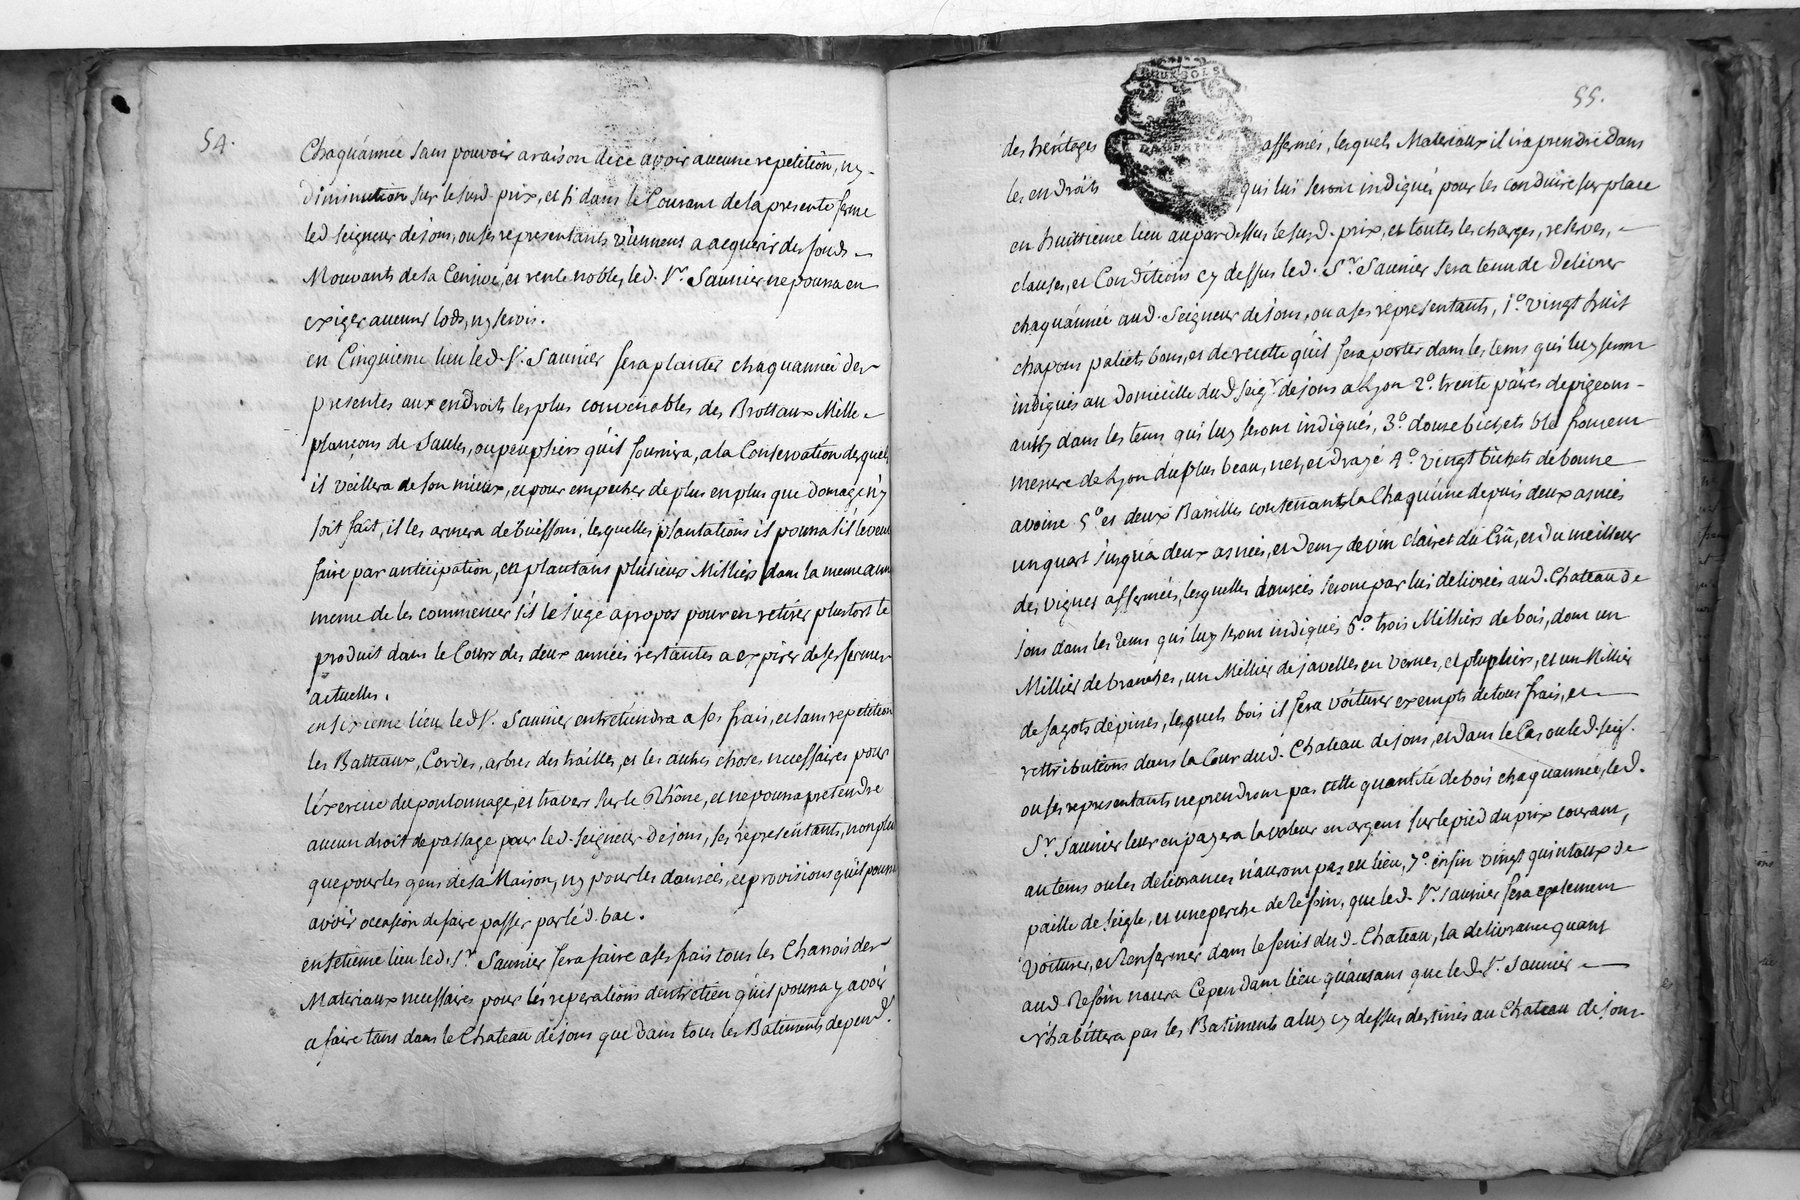 54.
Chaquánnée sans pouvoir a raison dece avoir aucune repetition, ny
diminution sur le susd. prix, et si dans le Courant de la presente ferme
led seigneur de jons, ou ses representants viennent a acquerir des fonds
Mouvants de sa Censive, et rente noble, led. Sr. Saunier ne pourra en
exiger aucuns lods, ny servis.
en Cinquieme lieu led. Sr. Saunier fera planter chaquannée des
presentes aux endroits les plus convenables des Brottaux Mille
plançons de Saules, ou peupliers qu'il fournira, a la Conservation desquels
il veillera de son mieux, et pour empecher de plus en plus que domage n'y
soit fait, il les armera de buissons, lesquelles plantations il pourra s'il le veut
faire par anticipation, en plantans plusieurs Milliers dans la meme année
meme de les commencer s'il le juge a propos pour en retirer plustost le
produit dans le Cours des deux années restantes a expirer de ses fermes
actuelles.
en sixieme lieu led Sr. Saunier entretiendra a ses frais, et sans repetition
les Batteaux, Cordes, arbres des trailles, et les autres choses necessaires pour
léxercice du pontonnage, et travers sur le Rhône, et ne pourra pretendre
aucun droit de passage pour led. seigneur de jons, ses representants, non plus
que pour les gens de sa Maison, ny pour les danrées, et provisions qu'il pourra
avoir occasion de faire passer par led. bac.
en setieme lieu led. Sr. Saunier fera faire a ses frais tous les Charrois des
Materiaux necessaires pour les reperations dentretien qu'il pourra y avoir
a faire tans dans le Chateau de jons que dans tous les Batiments depend.
55.
DEUX SOLS
des héritages affermés, lesquels Materiaux il ira prendre dans
les endroits qui lui seront indiqués pour les conduire sur place
en huittieme lieu aupardessus le susd. prix, et toutes les charges, reserves,
clauses, et Conditions cy dessus led. Sr. Saunier sera tenu de delivrer
chaquánnée aud. Seigneur de jons, ou a ses representants, 1o. vingt huit
chapons paliets bons, et de recette qu'il fera porter dans les tems qui luy seront
indiqués au domicille dud Seigr. de jons a Lyon 2o. trente paires de pigeons
aussy dans les tems qui luy seront indiqués, 3o. douse bichets blé froment
mesure de Lyon du plus beau, net, et dragé 4o. vingt bichets de bonne
avoine 5o. et deux Barilles contenants la Chaquúne depuis deux asnées
un quart jusqu'a deux asnées, et demy de vin clairet du Crû, et du meilleur
des vignes affermées, lesquelles danrées seront par lui delivrées aud. Chateau de
jons dans les tems qui luy seront indiqués 6o. trois Milliers de bois, dont un
Millier de branches, un Millier de javelles en vernes, et peupliers, et un Millier
de fagots dépines, lesquels bois il fera voiturer exempts de tous frais, et
rettributions dans la Cour dud. Chateau de jons, et dans le Cas ou led. seigr.
ou ses representants ne prendront pas cette quantité de bois chaquannée, led.
Sr. Saunier leur en payera la valeur en argent sur le pied du prix courant,
au tems ou les delivrances n'auront pas eu lieu, 7o. enfin vingt quintaux de
paille de seigle, et une perche de Refoin, que led. Sr. Saunier fera egalement
Voiturer, et Renfermer dans le fenis dud. Chateau, la delivrance quant
aud. Refoin n'aura Cependant lieu qu'autant que led. Sr. Saunier
n'habittera pas les Batiments a luy cy dessus destinés au Chateau de jons